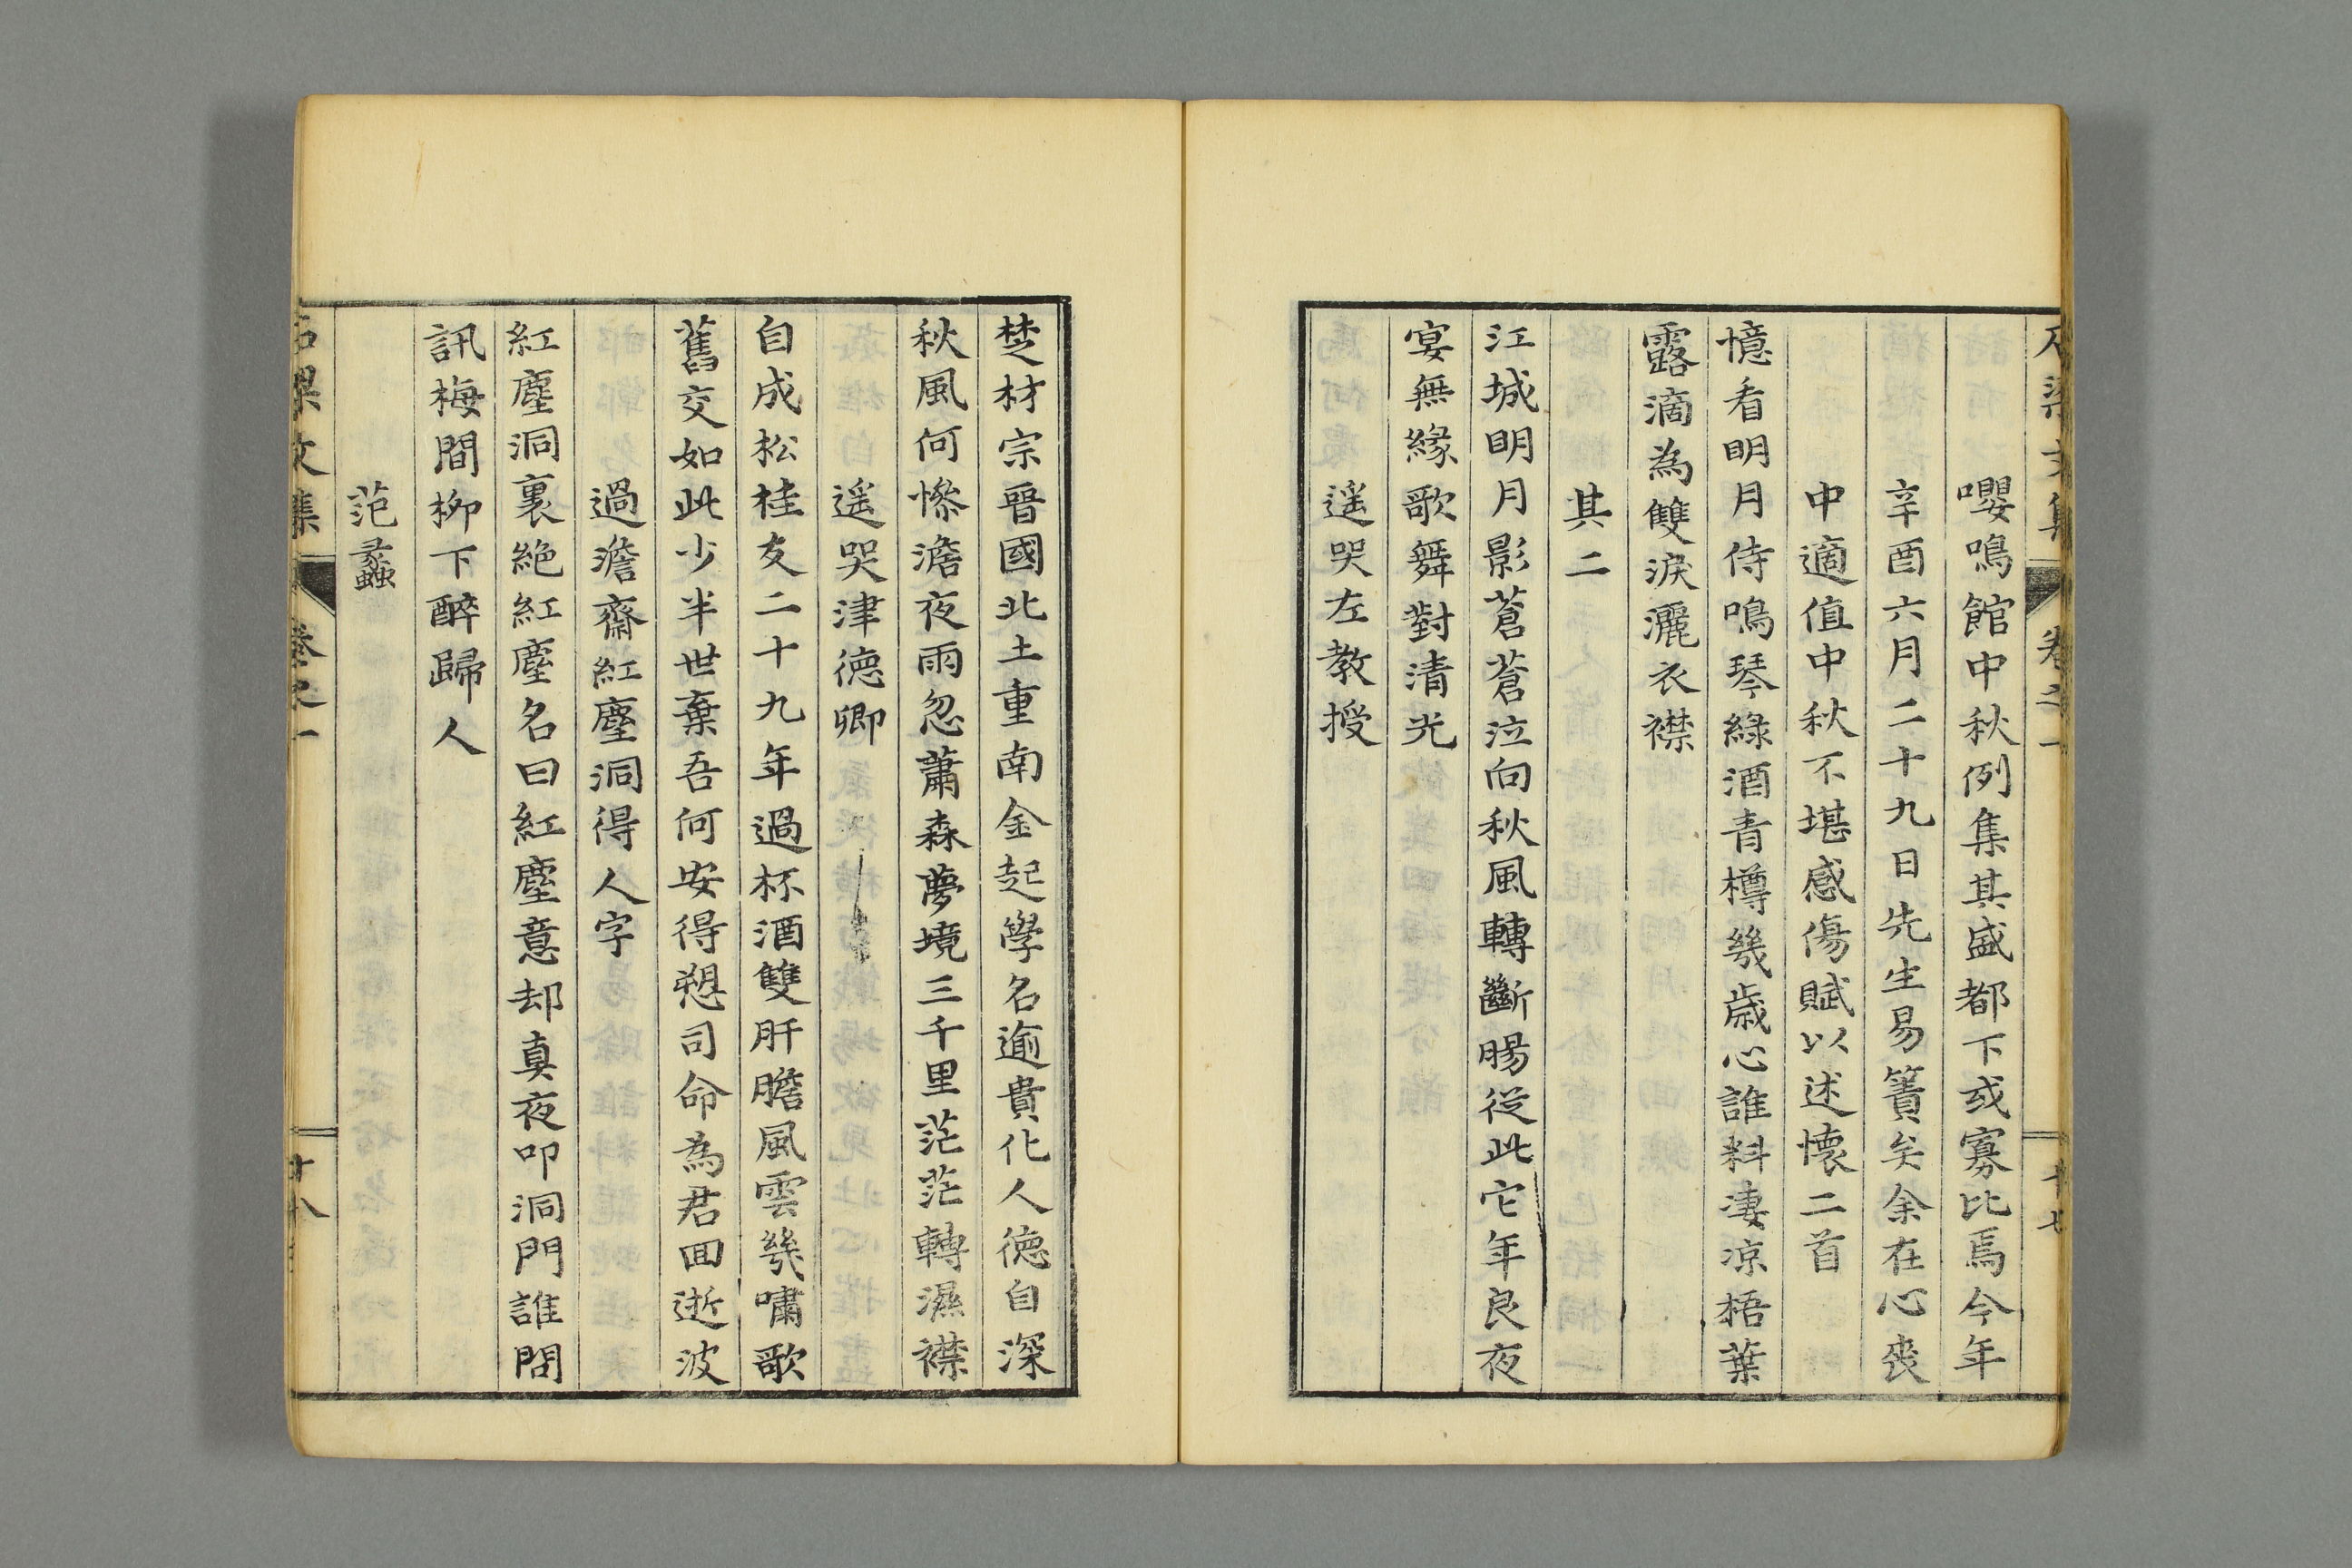 嚶鳴館中秋例集其盛都下或寡比焉今年
辛酉六月二十九日先生易簀矣余在心喪
中適值中秋不堪感傷賦以述懷二首
憶看明月侍鳴琴綠酒青樽幾歲心誰料淒涼梧葉
露滴為雙淚灑衣襟
其二
江城明月影蒼蒼泣向秋風轉斷腸從此它年良夜
宴無緣歌舞對清光
遥哭左教授
楚材宗晉國北土重南金起學名逾貴化人德自深
秋風何慘澹夜雨忽蕭森夢境三千里茫茫轉濕襟
遥哭津德卿
自成松桂友二十九年過杯酒雙肝膽風雲幾嘯歌
舊交如此少半世棄吾何安得愬司命為君回逝波
過澹齋紅塵洞得人字
紅塵洞裏絕紅塵名曰紅塵意却真夜叩洞門誰問
訊梅間柳下醉歸人
范蠡
石梁文集 卷之一 十八